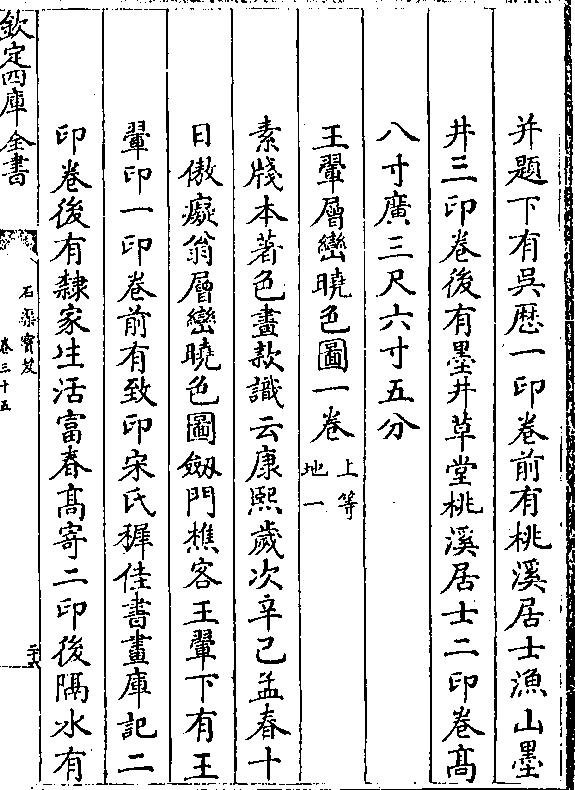 并題下有吳歴一印卷前有桃溪居士漁山墨
井三印卷後有墨井草堂桃溪居士二印卷髙
八寸廣三尺六寸五分
王翬層巒曉色圖一卷上等地一
素牋本著色畫款識云康熙歲次辛巳孟春十
日倣癡翁層巒曉色圖劔門樵客王翬下有王
翬印一印卷前有致印宋氏穉佳書畫庫記二
印卷後有隸家生活富春髙寄二印後隔水有
欽定四庫全書
石渠寳笈
卷三十五